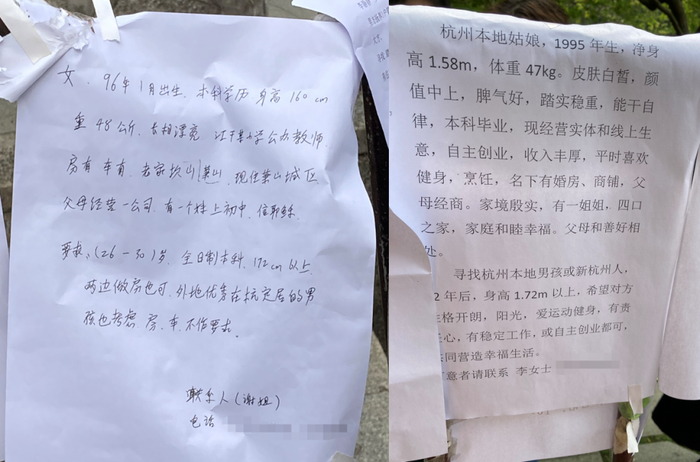 女. 96年1月出生. 本科学历 身高160cm
重48公斤. 长相漂亮 江干某小学公办教师
房有 车有. 老家坎山 萧山. 现住萧山城区
父母经营一公司. 有一个妹上初中. 信耶稣
要求:(26-30)岁. 全日制本科. 172cm以上.
两边做房也可. 外地优秀在杭定居的男
孩也考虑 房. 车. 不作要求.
联系人(谢姐)
电话
杭州本地姑娘，1995年生，净身
高1.58m，体重47kg。皮肤白皙，颜
值中上，脾气好，踏实稳重，能干自
律，本科毕业，现经营实体和线上生
意，自主创业，收入丰厚，平时喜欢
健身，烹饪，名下有婚房、商铺，父
母经商。家境殷实，有一姐姐，四口
之家，家庭和睦幸福。父母和善好相
处。
寻找杭州本地男孩或新杭州人，
2年后，身高1.72m以上，希望对方
格开朗，阳光，爱运动健身，有责
心，有稳定工作，或自主创业都可，
同营造幸福生活。
意者请联系 李女士